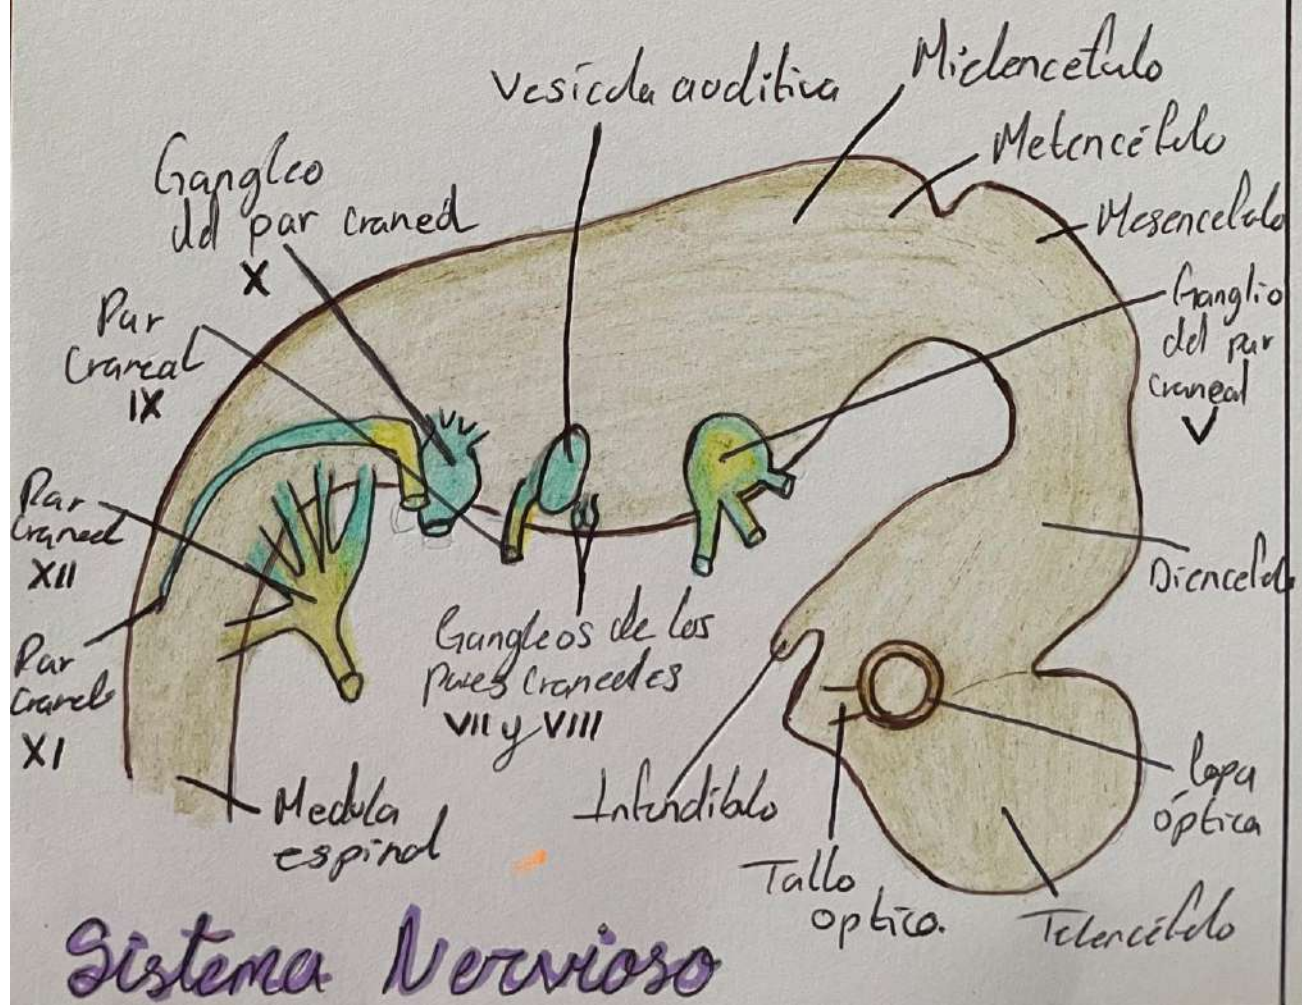 Vesícula auditiva
Mielencefalo
Metencéfalo
Mesencefalo
Gangleo
del par craneal
X
Par
Craneal
IX
Ganglio
del par
craneal
V
Par
Craneal
XII
Par
Craneal
XI
Gangleos de los
pares craneales
VII y VIII
Diencefalo
Infundíbulo
Copa
óptica
Medula
espinal
Tallo
optico.
Telencéfalo
Sistema Nervioso